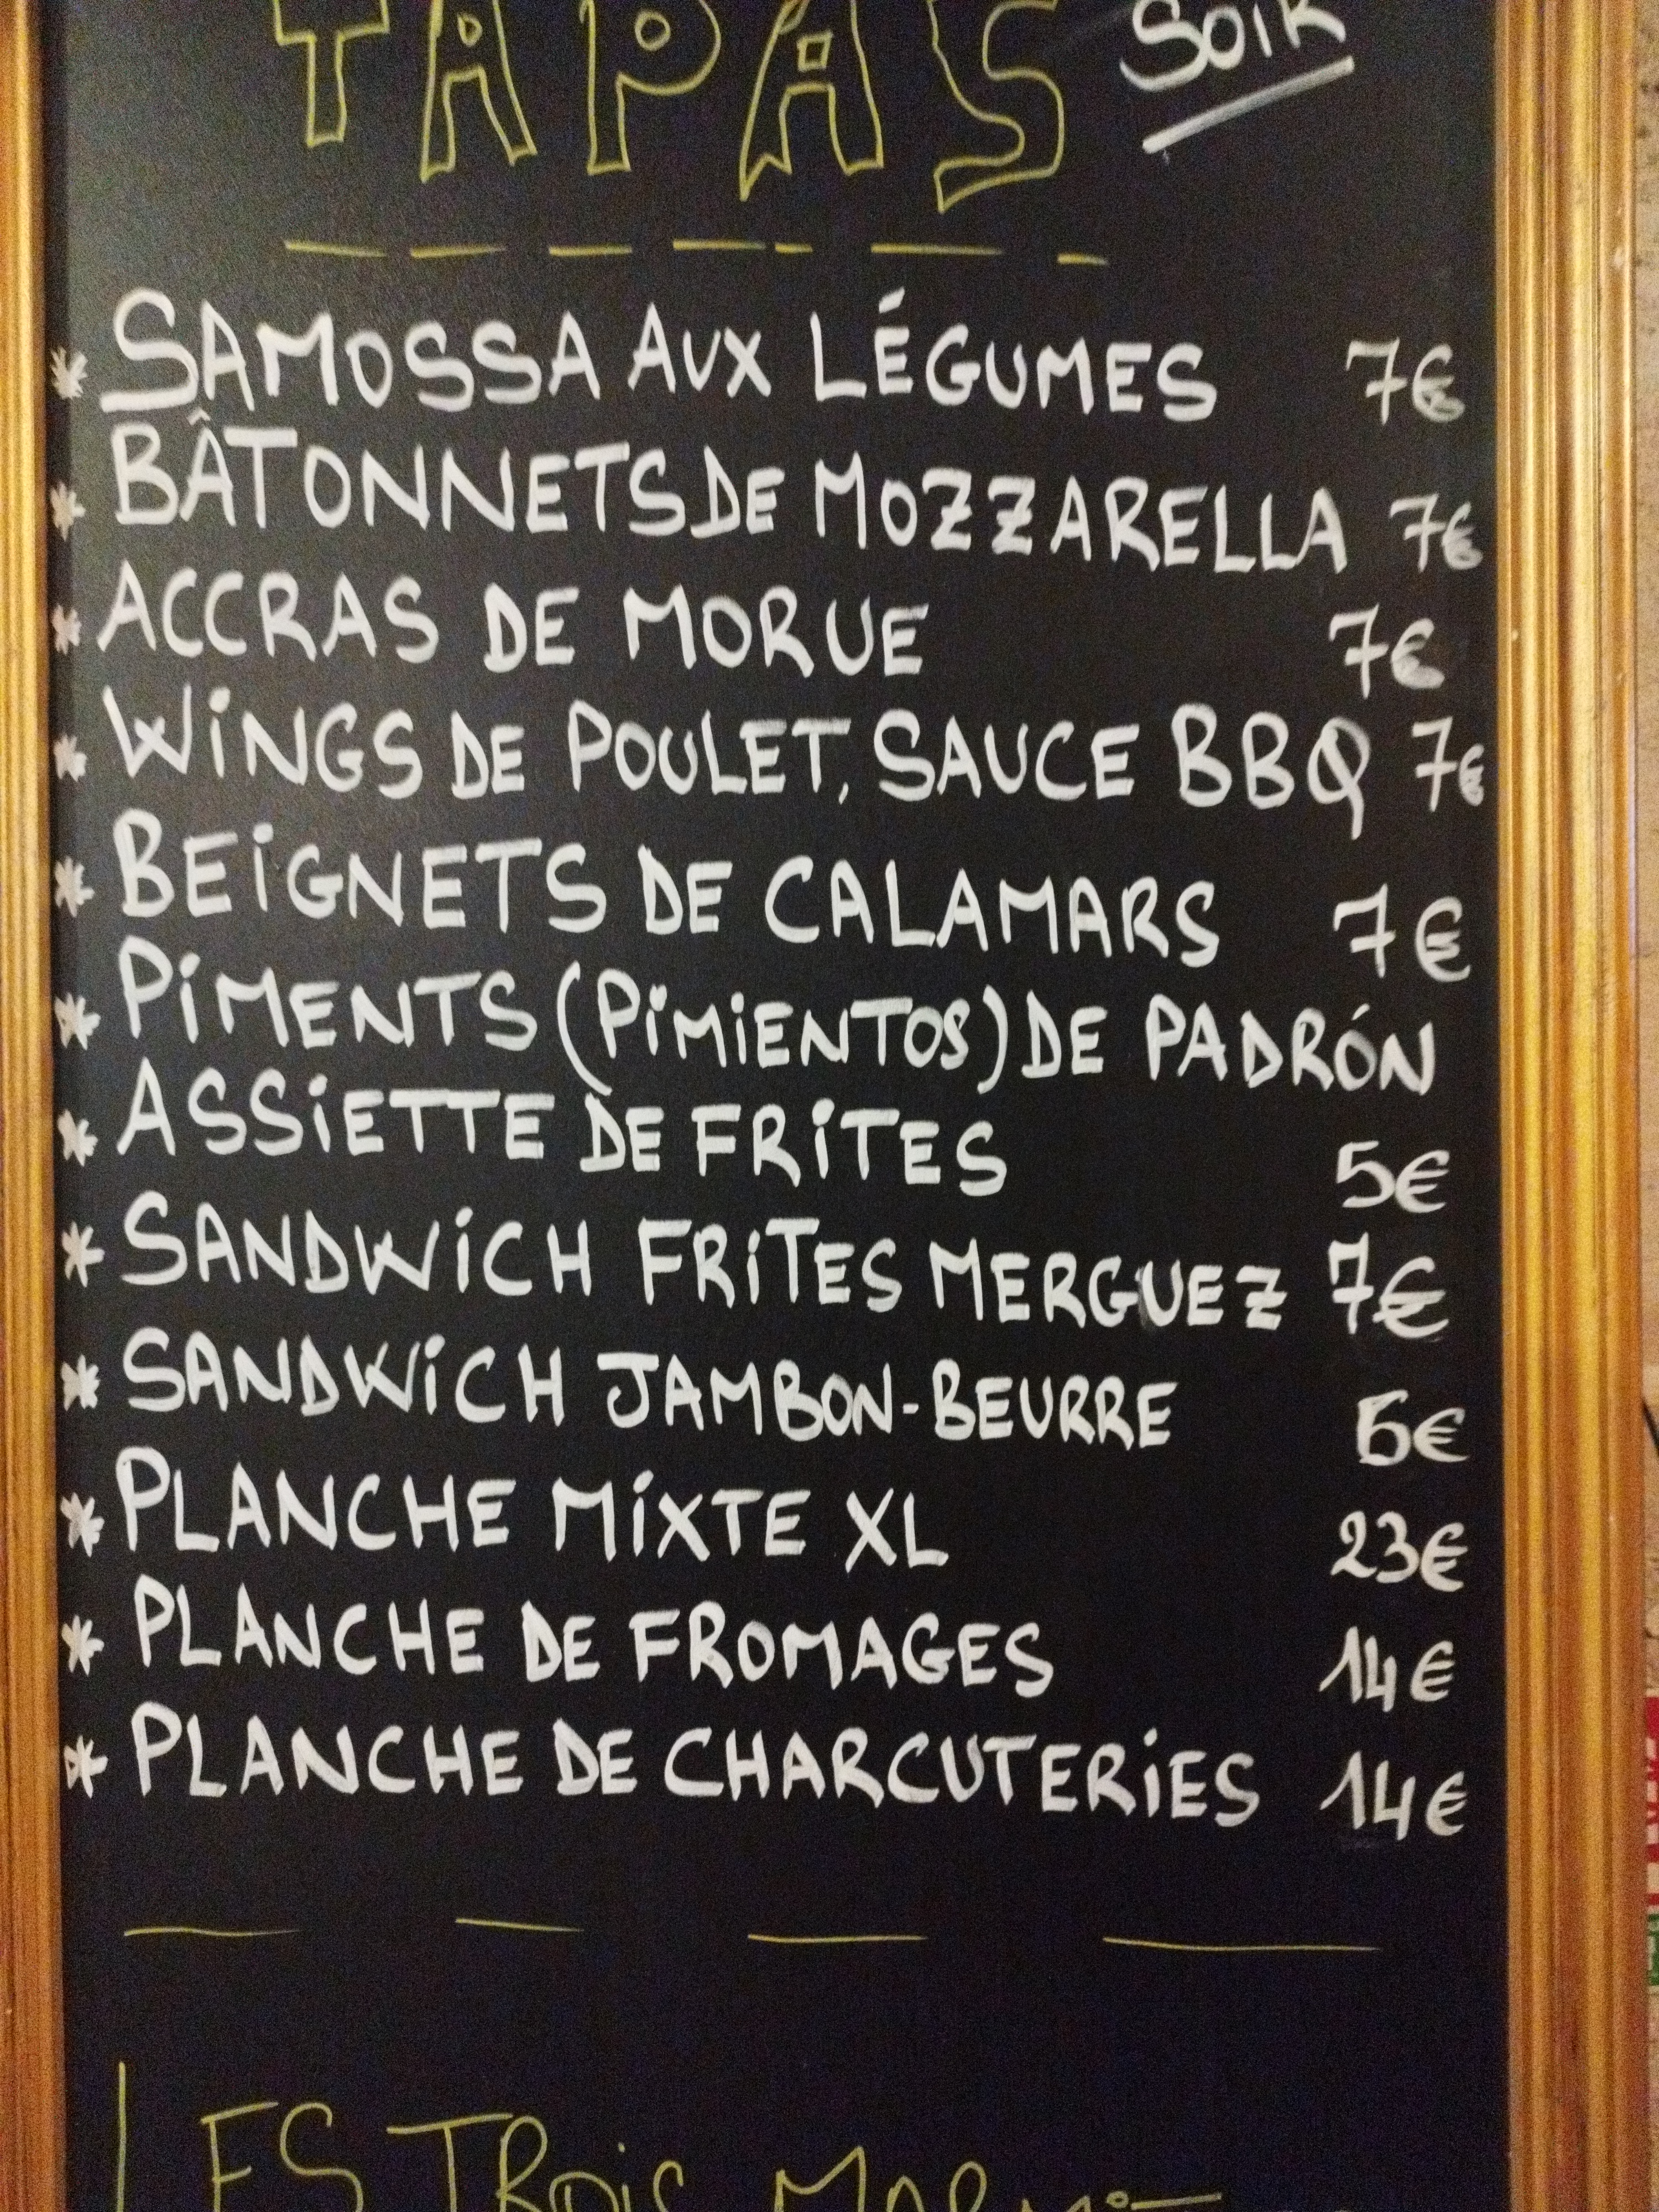 TAPAS SOIR
* SAMOSSA AUX LÉGUMES 7€
* BÂTONNETS DE MOZZARELLA 7€
* ACCRAS DE MORUE 7€
* WiNGS DE POULET, SAUCE BBQ 7€
* BEiGNETS DE CALAMARS 7€
* PiMENTS (PiMiENTOS) DE PADRÓN
* ASSiETTE DE FRiTES 5€
* SANDWiCH FRiTES MERGUEZ 7€
* SANDWiCH JAMBON-BEURRE 5€
* PLANCHE MiXTE XL 23€
* PLANCHE DE FROMAGES 14€
* PLANCHE DE CHARCUTERiES 14€
LES TROiS